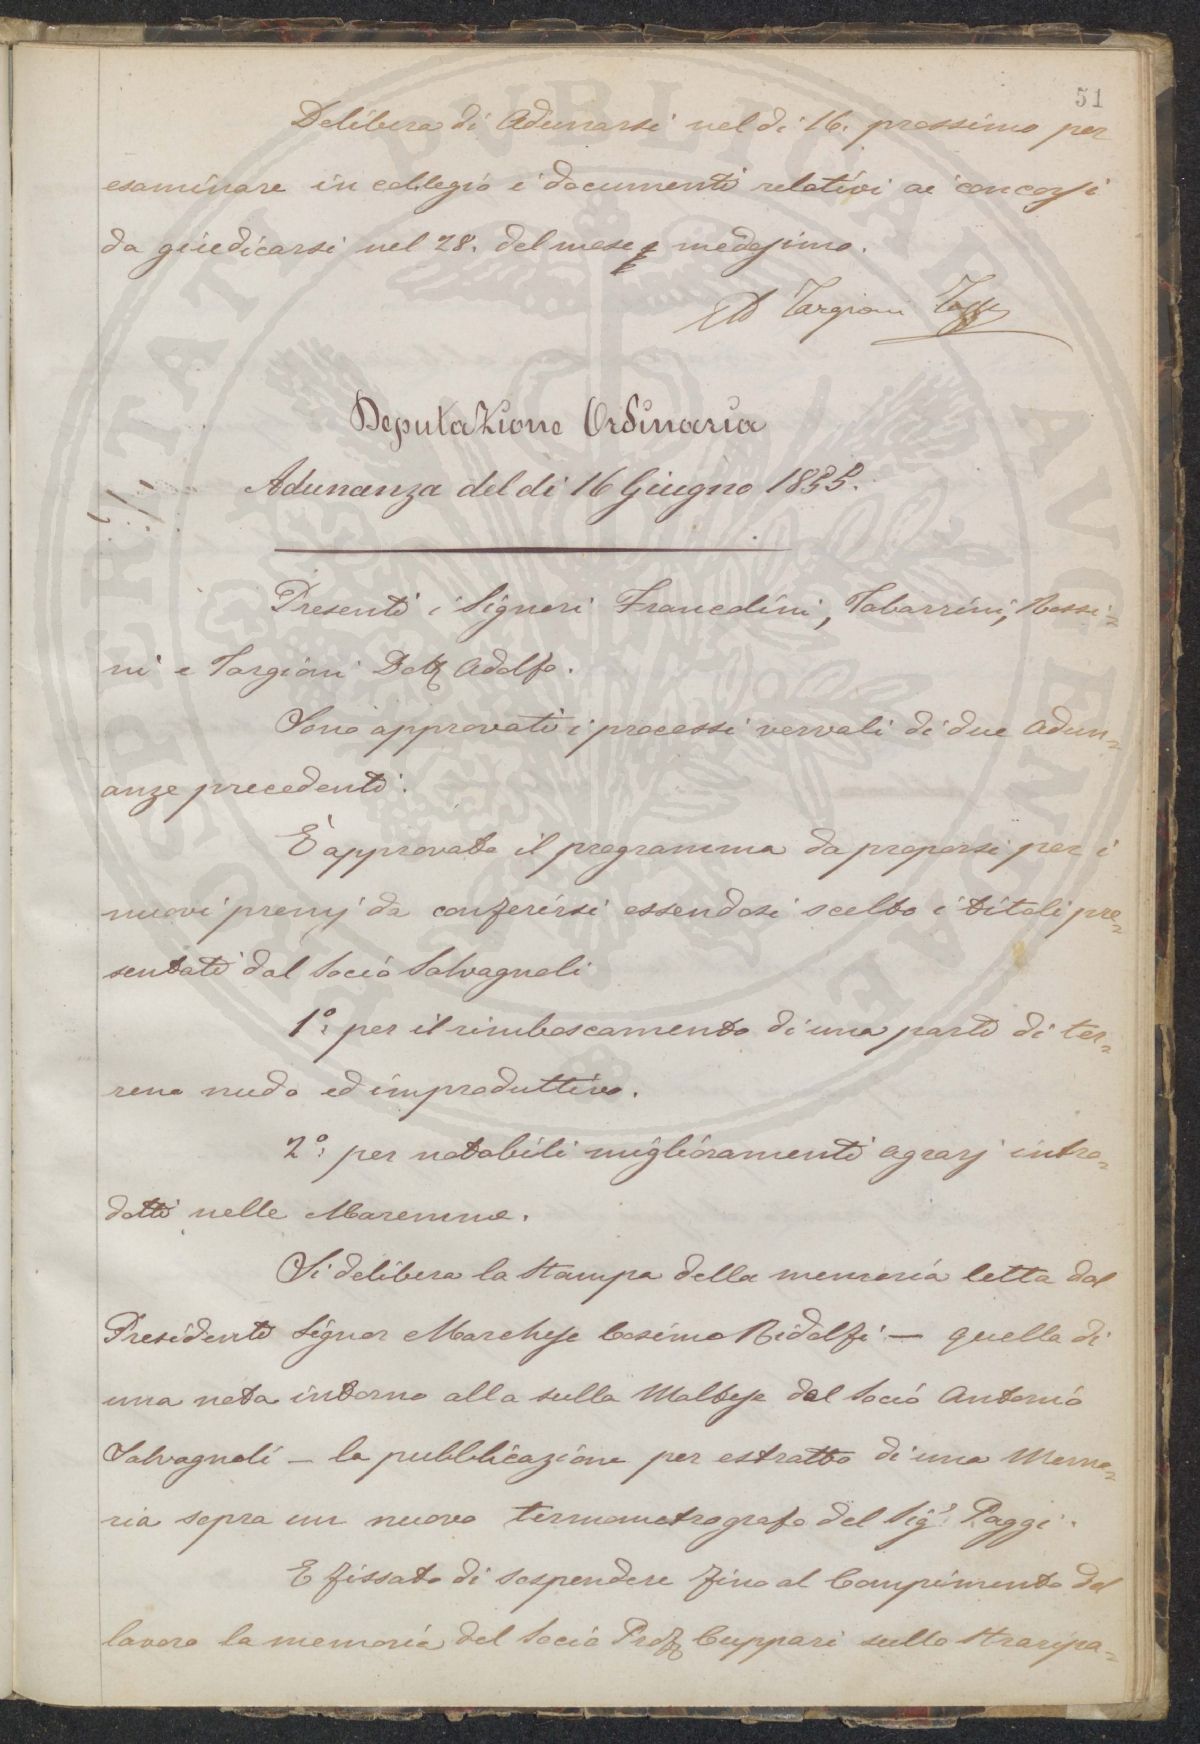 51
Delibera di Adunarsi nel dì 16. prossimo per
esaminare in collegio i documenti relativi ai concorsi
da giudicarsi nel 28. del mese medesimo.
AD Targioni Tozz
Deputazione Ordinaria
Adunanza del dì 16 Giugno 1855.
Presenti i Signori Francolini, Tabarrini, Rossi-
ni e Targioni Dott Adolfo.
Sono approvati i processi vervali di due Adun-
anze precedenti.
È approvato il programma da proporsi per i
nuovi premj da conferirsi essendosi scelto i titoli pre-
sentati dal Socio Salvagnoli
1º. per il rimboscamento di una parte di ter-
reno nudo ed improduttivo.
2º. per notabili miglioramenti agrarj intro-
dotti nelle Maremme.
Si delibera la stampa della memoria letta dal
Presidente Signor Marchese Cosimo Ridolfi — quella di
una nota intorno alla sulla Maltese dal Socio Antonio
Salvagnoli — la pubblicazione per estratto di una Memo-
ria sopra un nuovo termometrografo del Sigr. Paggi.
E fissato di sospendere fino al Compimento del
lavoro la memoria del Socio Prof Cuppari sullo straripa-
PROSPERITATI PVBLICAE AVGENDAE